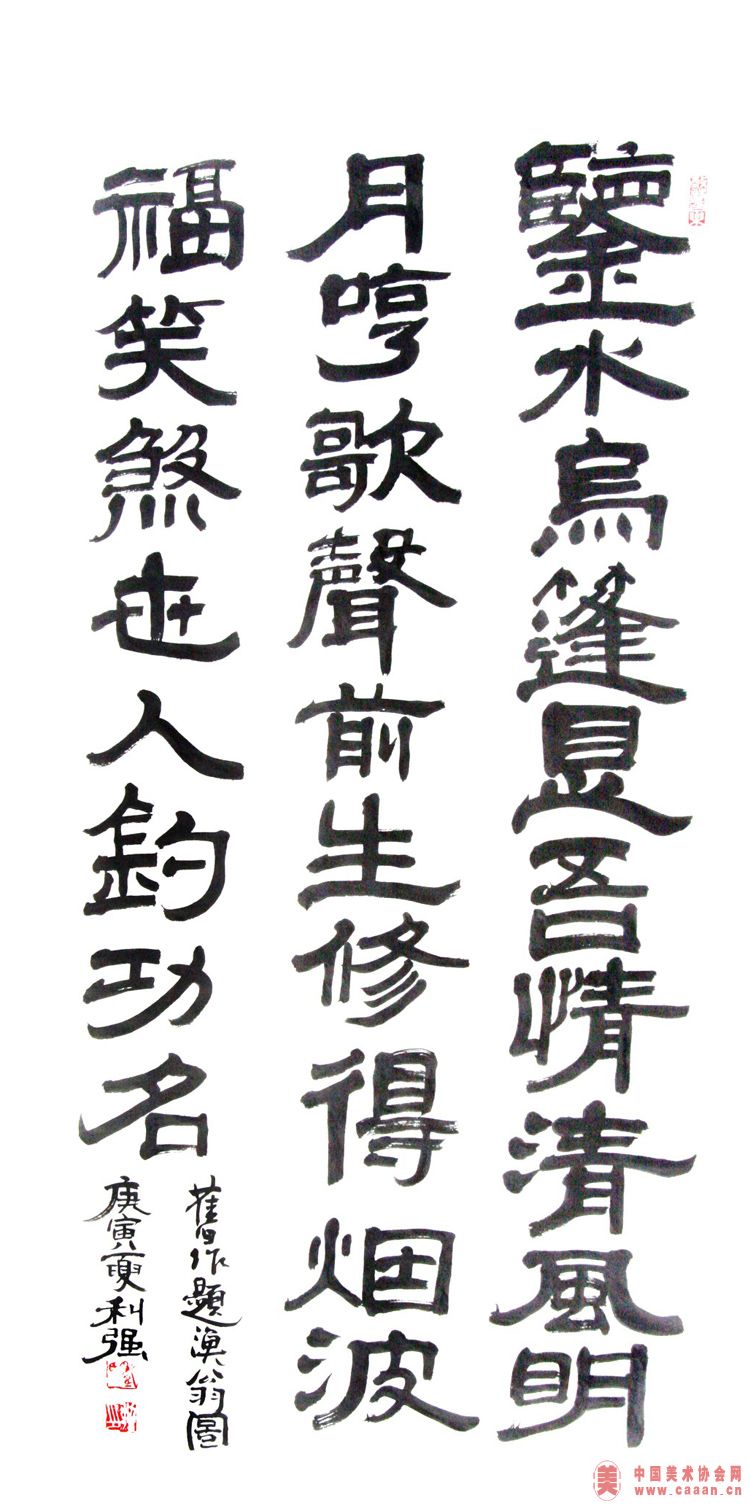 鑒水烏篷是吾情清風明
月哼歌聲前生修得烟波
福笑煞世人釣功名
舊作題漁翁圖
庚寅夏利强
美 中国美术协会网
www.caaan.cn